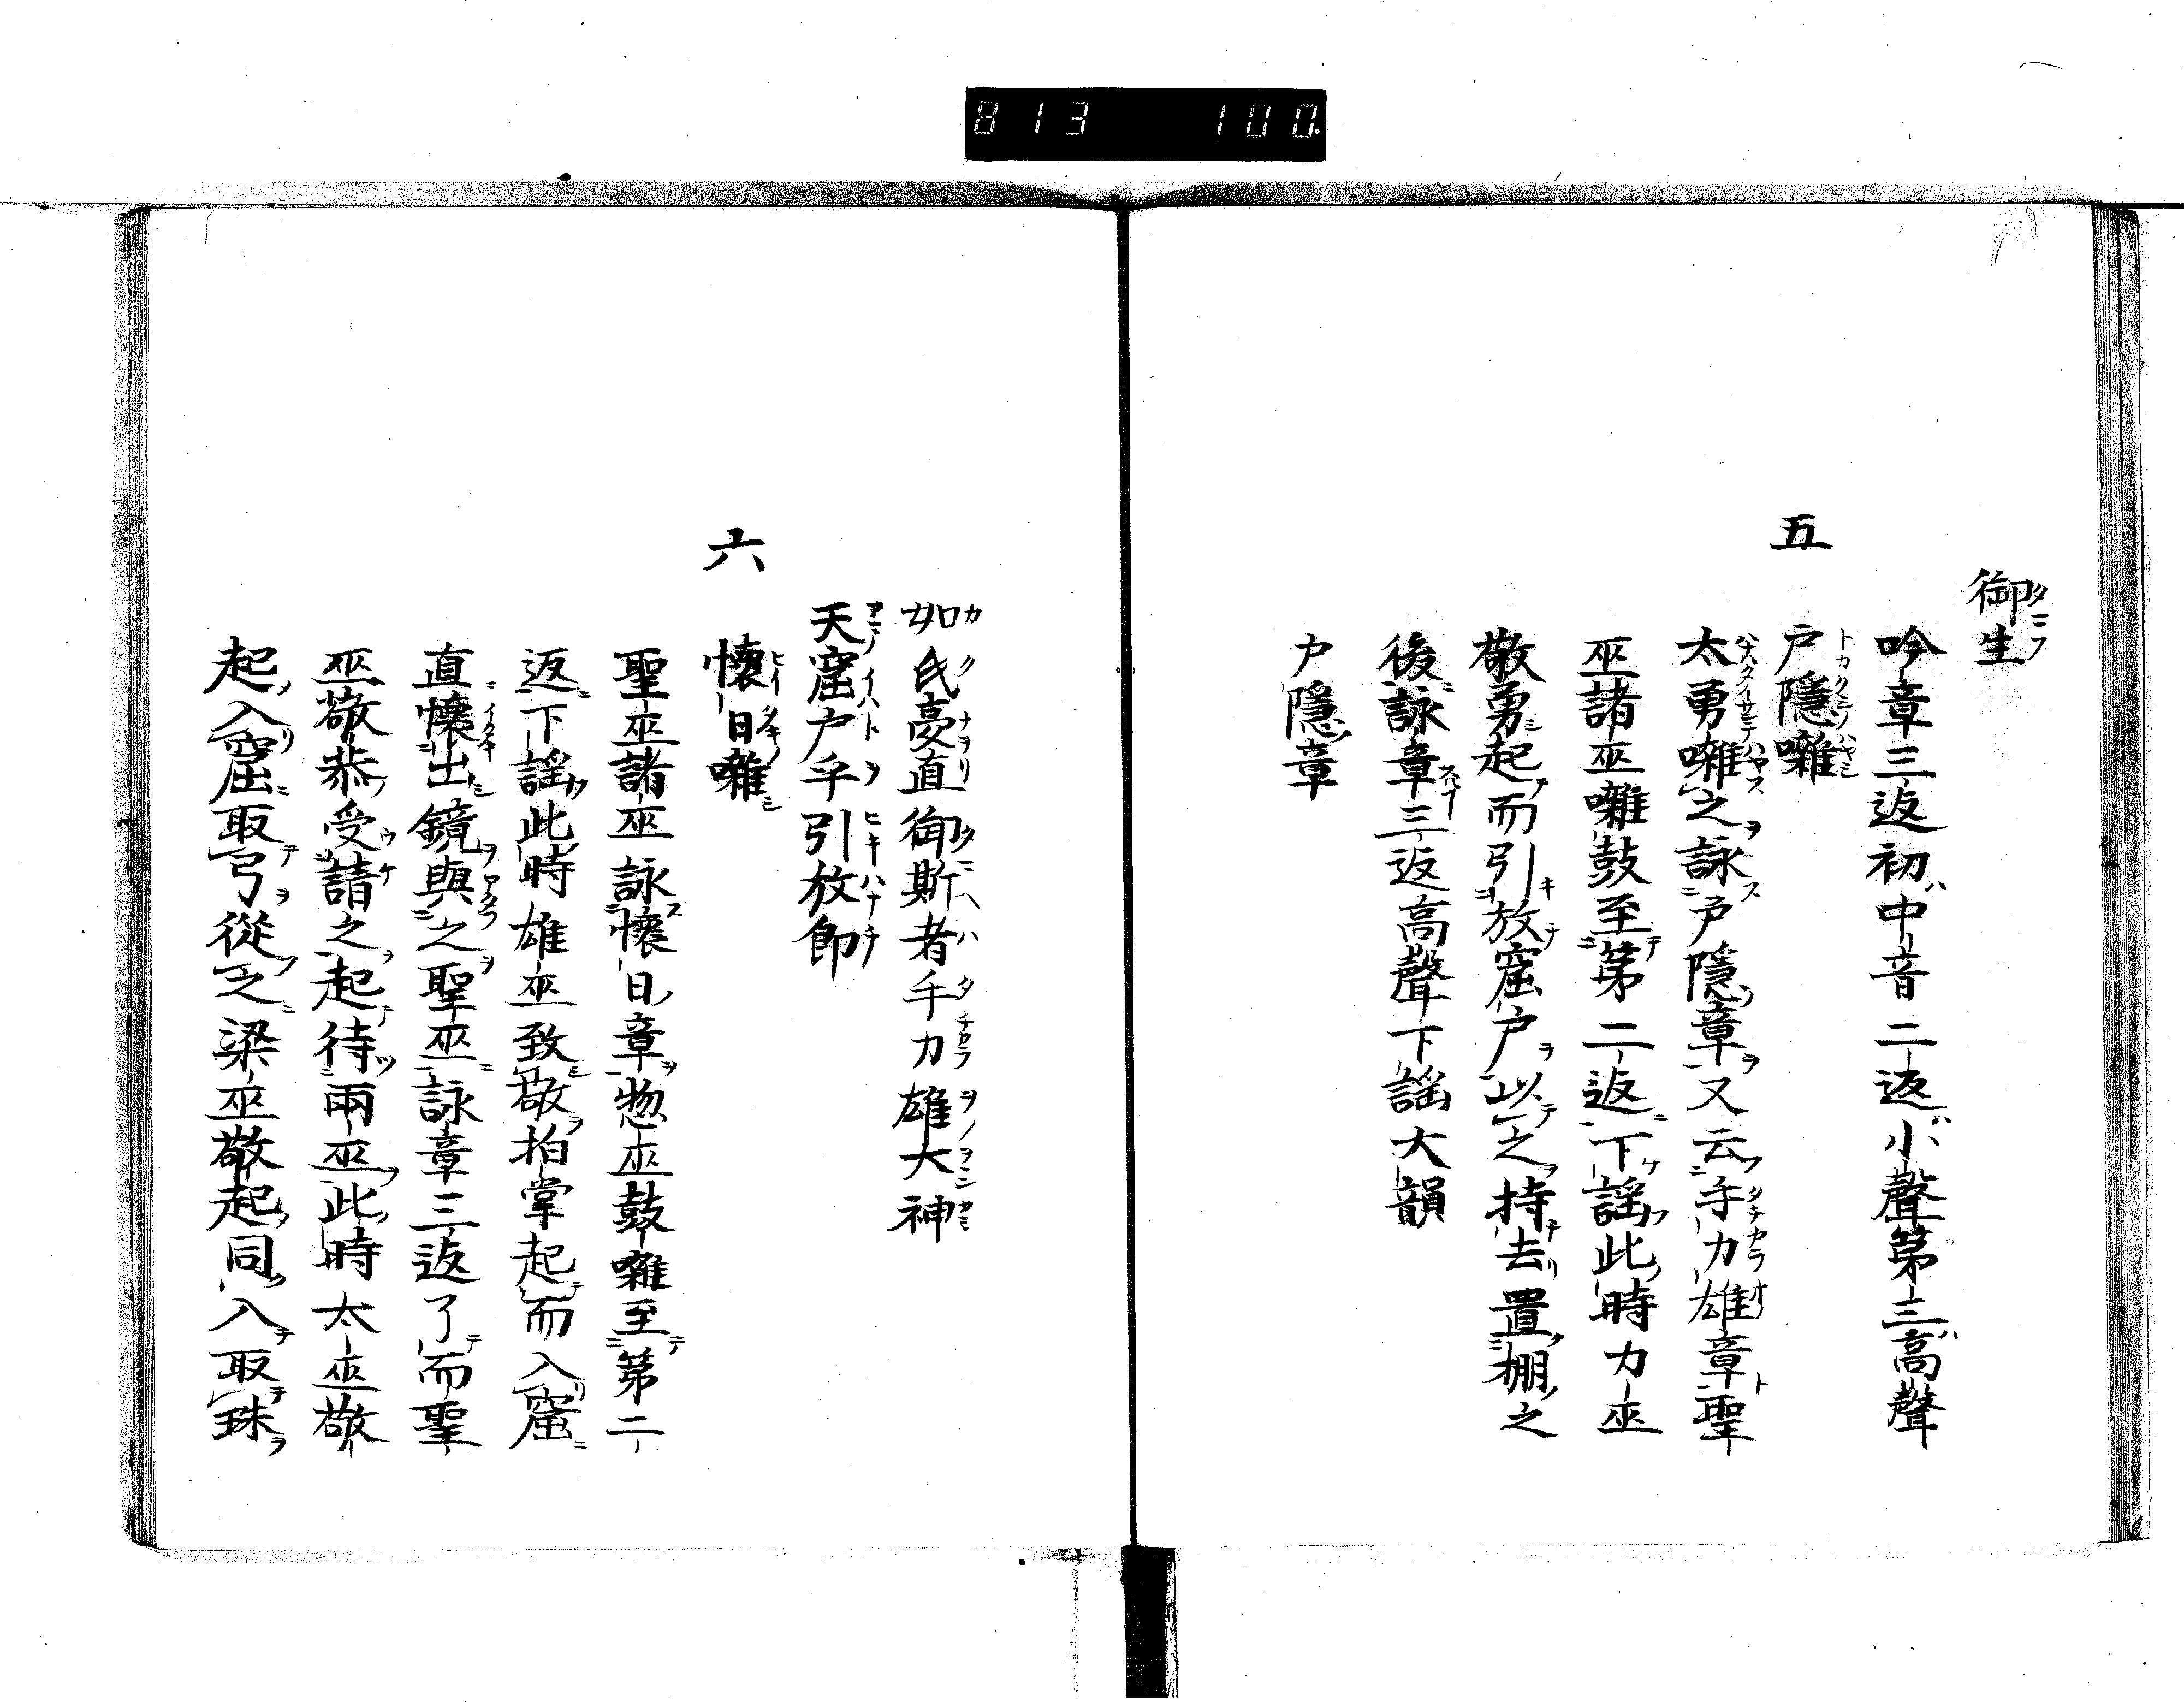 813 100.
御生
吟章三返初中音二返小聲第三高聲
五
戸隱囃
太勇囃之詠戸隱章又云手力雄章聖
巫諸巫囃鼓至第二返下謡此時力巫
敬勇起而引放窟戸以之持去置棚之
後詠章三返高聲下謡大韻
戸隱章
如氐憂直御斯者手力雄大神
天窟戸乎引放郎
六
懐日囃
聖巫諸巫詠懐日章惣巫鼓囃至第二
返下謡此時雄巫致敬拍掌起而入窟
直懐出鏡與之聖巫詠章三返了而聖
巫敬恭受請之起待兩巫此時太巫敬
起入窟取弓從之梁巫敬起同入取珠